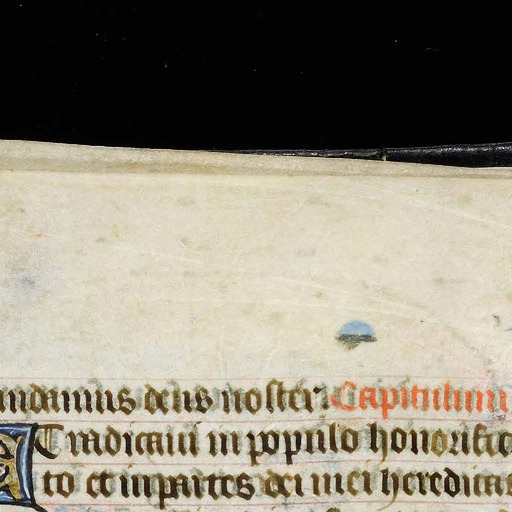 undamus deus noster. Capitulum
Et radicaui in populo honorific
to et in partes dei mei hereditas